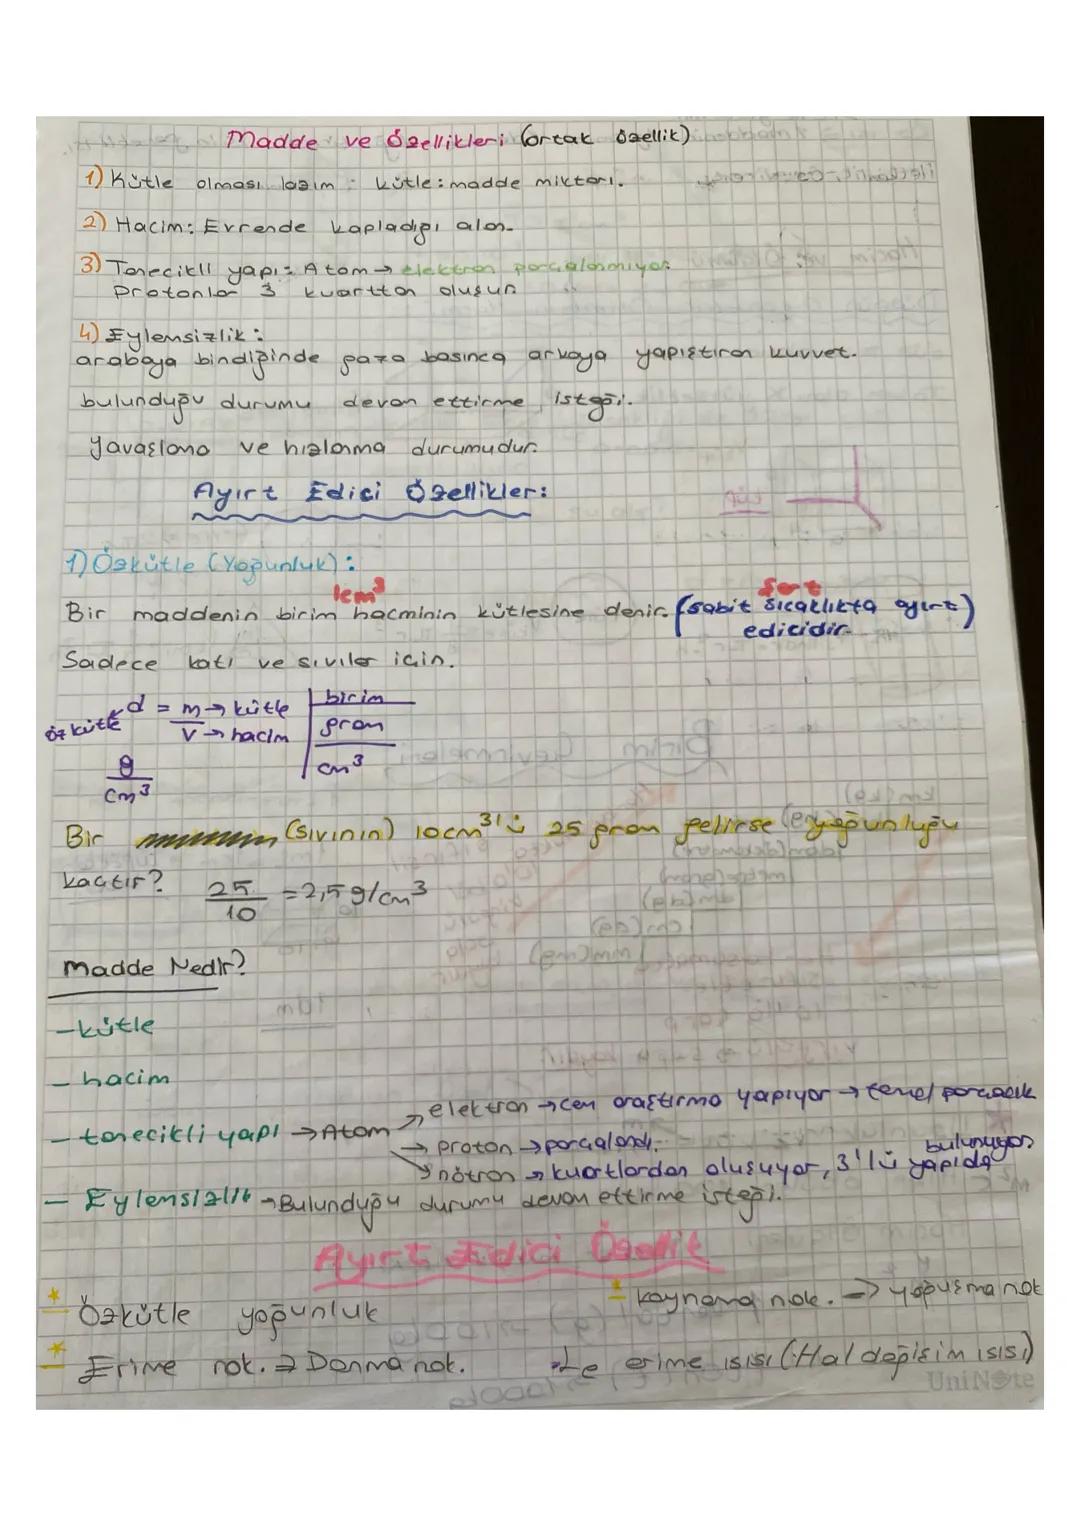 Madde ve Özellikleri (ortak özellik)
1) Kütle olması lazım : kütle: madde miktarı.
2) Hacim: Evrende kapladığı alan.
3) Tanecikli yapı: Atom → elektron parçalanmıyor.
Protonlar 3 kuarttan oluşur
4) Eylemsizlik :
arabaya bindiğinde gaza basınca arkaya yapıştıran kuvvet.
bulunduğu durumu devam ettirme isteği.
Yavaşlama ve hızlanma durumudur.
Ayırt Edici Özellikler:
1) Özkütle (Yoğunluk) :
1cm³ şart
Bir maddenin birim hacminin kütlesine denir. (sabit sıcaklıkta ayırt edicidir.)
Sadece katı ve sıvılar için.
özkütle d = m → kütle birim
V → hacim gram
cm³
g
cm³
Bir (sıvının) 10cm³'ü 25 gram gelirse yoğunluğu
kaçtır? 25/10 = 2,5 g/cm³
Madde Nedir?
- kütle
- hacim
→ elektron → cern araştırma yapıyor → temel parçacık
- tanecikli yapı → Atom → proton → parçalandı. bulunuyor
→ nötron → kuartlardan oluşuyor, 3'lü yapıda
- Eylemsizlik → Bulunduğu durumu devam ettirme isteği.
Ayırt Edici Özellik
Özkütle yoğunluk kaynama nok. → yoğuşma nok
Erime nok. → Donma nok. Le erime ısısı (Hal değişim ısısı)
UniNote